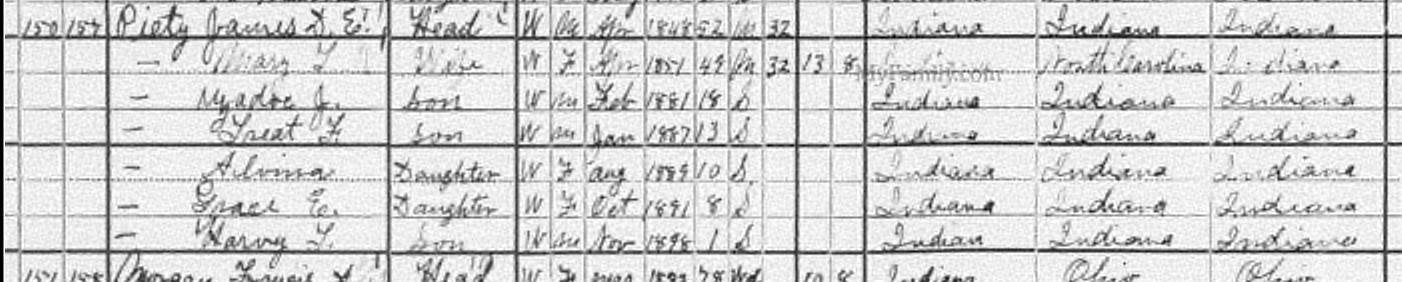 150 157 Piety James D. E. Head W M Apr 1848 52 M 32 Indiana Indiana Indiana
— Mary L Wife W F Apr 1851 49 M 32 13 8 North Carolina Indiana
MyFamily.com
— J. Son W M Feb 1881 18 S Indiana Indiana Indiana
— Treat F. Son W M Jan 1887 13 S Indiana Indiana Indiana
— Alvina Daughter W F Aug 1889 10 S Indiana Indiana Indiana
— Grace E. Daughter W F Oct 1891 8 S Indiana Indiana Indiana
— Harvy L. Son W M Nov 1898 1 S Indian Indiana Indiana
151 158 Morgan Francis A Head W F 78 Wd 10 8 Indiana Ohio Ohio